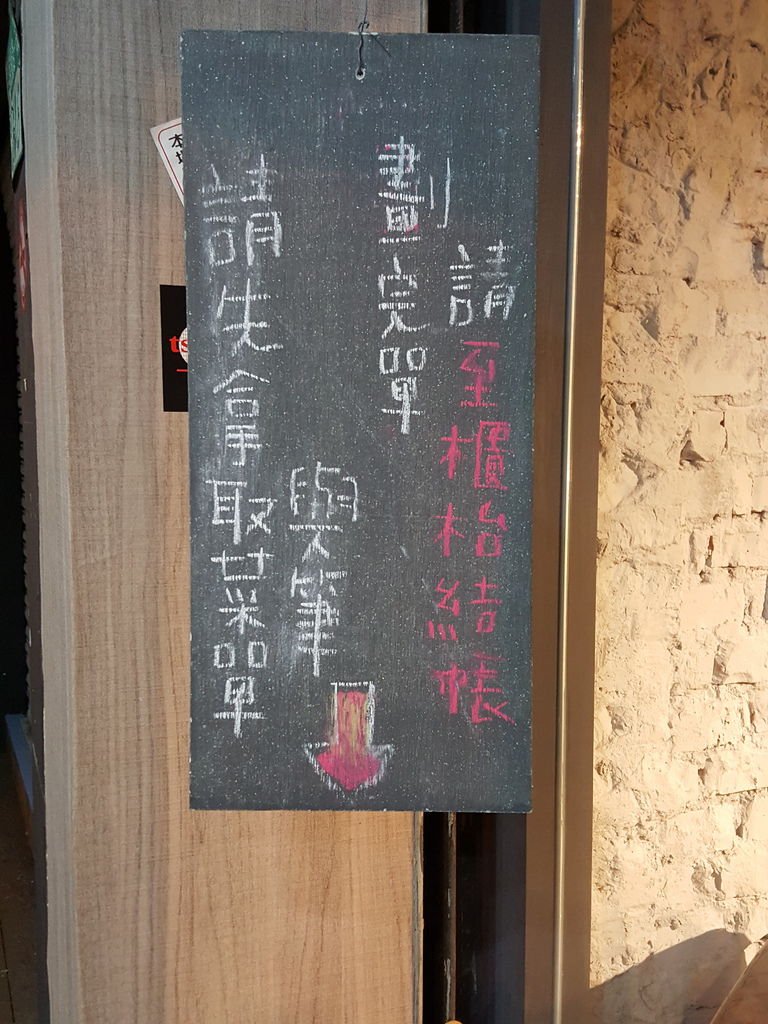 請先拿取菜單
與筆
劃完單
請至櫃枱結帳
本
ts